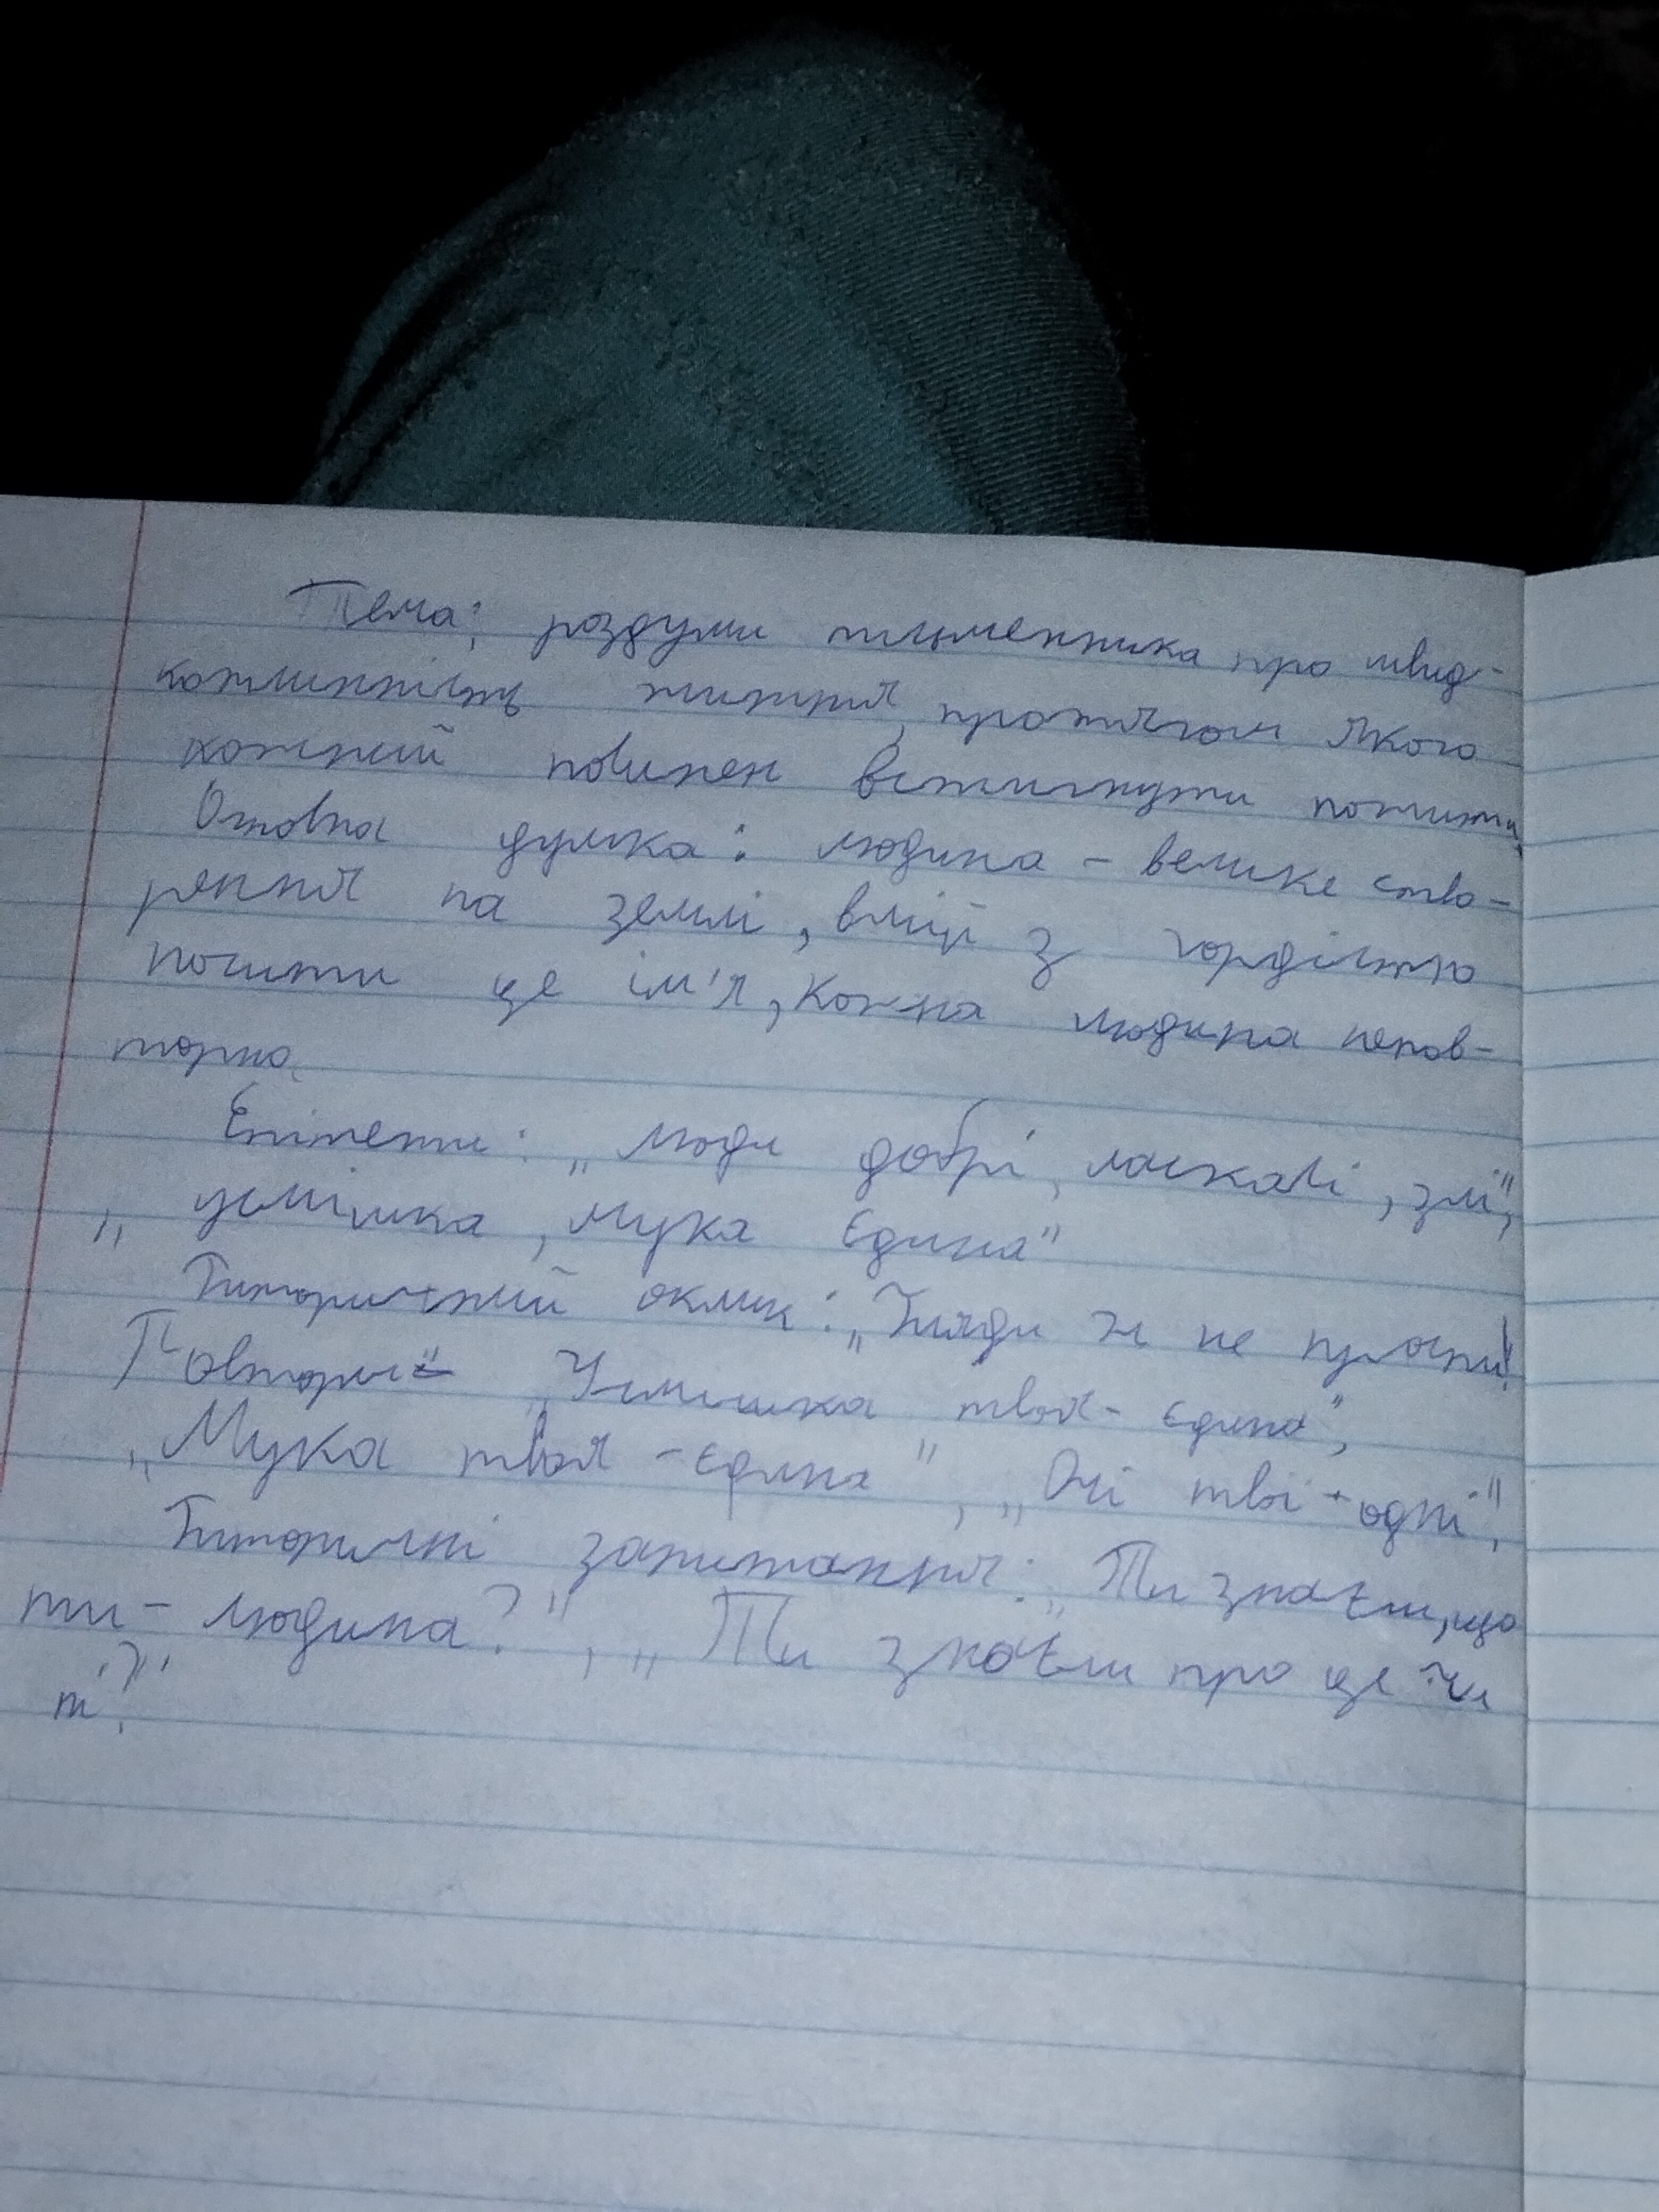 Тема: роздуми письменника про швид-
коплинність життя, протягом якого
кожний повинен встигнути пожити.
Оновна думка: людина - велике ство-
рення на землі, вмій з гордістю
носити це ім'я, кожна людина непов-
торна.
Епітети: „люди добрі, ласкаві, злі",
„усмішка, мука єдина"
Риторичний оклик: „Гляди ж не проспи!
Повтори: „Усмішка твоя - єдина",
„Мука твоя - єдина", „Очі твої - одні",
Риторичні запитання: „Ти знаєш, що
ти - людина?", „Ти знаєш про це чи
ні?"